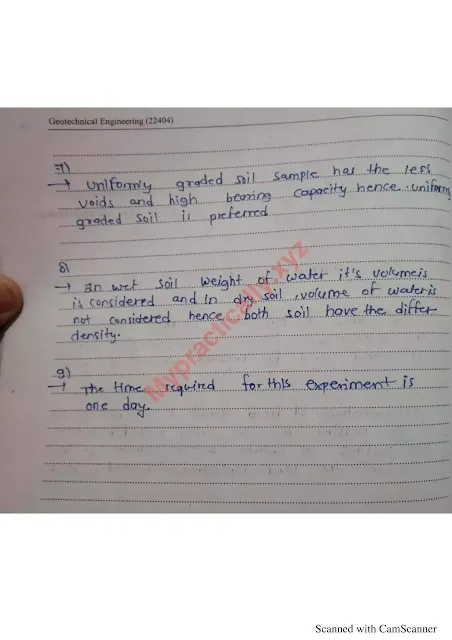 Geotechnical Engineering (22404)
7)
→ Uniformly graded soil sample has the less
voids and high bearing capacity hence uniform
graded soil is preferred
8)
→ In wet soil weight of water it's volume is
is considered and in dry soil, volume of water is
not considered hence both soil have the differ
density.
9)
→ The time required for this experiment is
one day.
Mypractically.xyz
Scanned with CamScanner